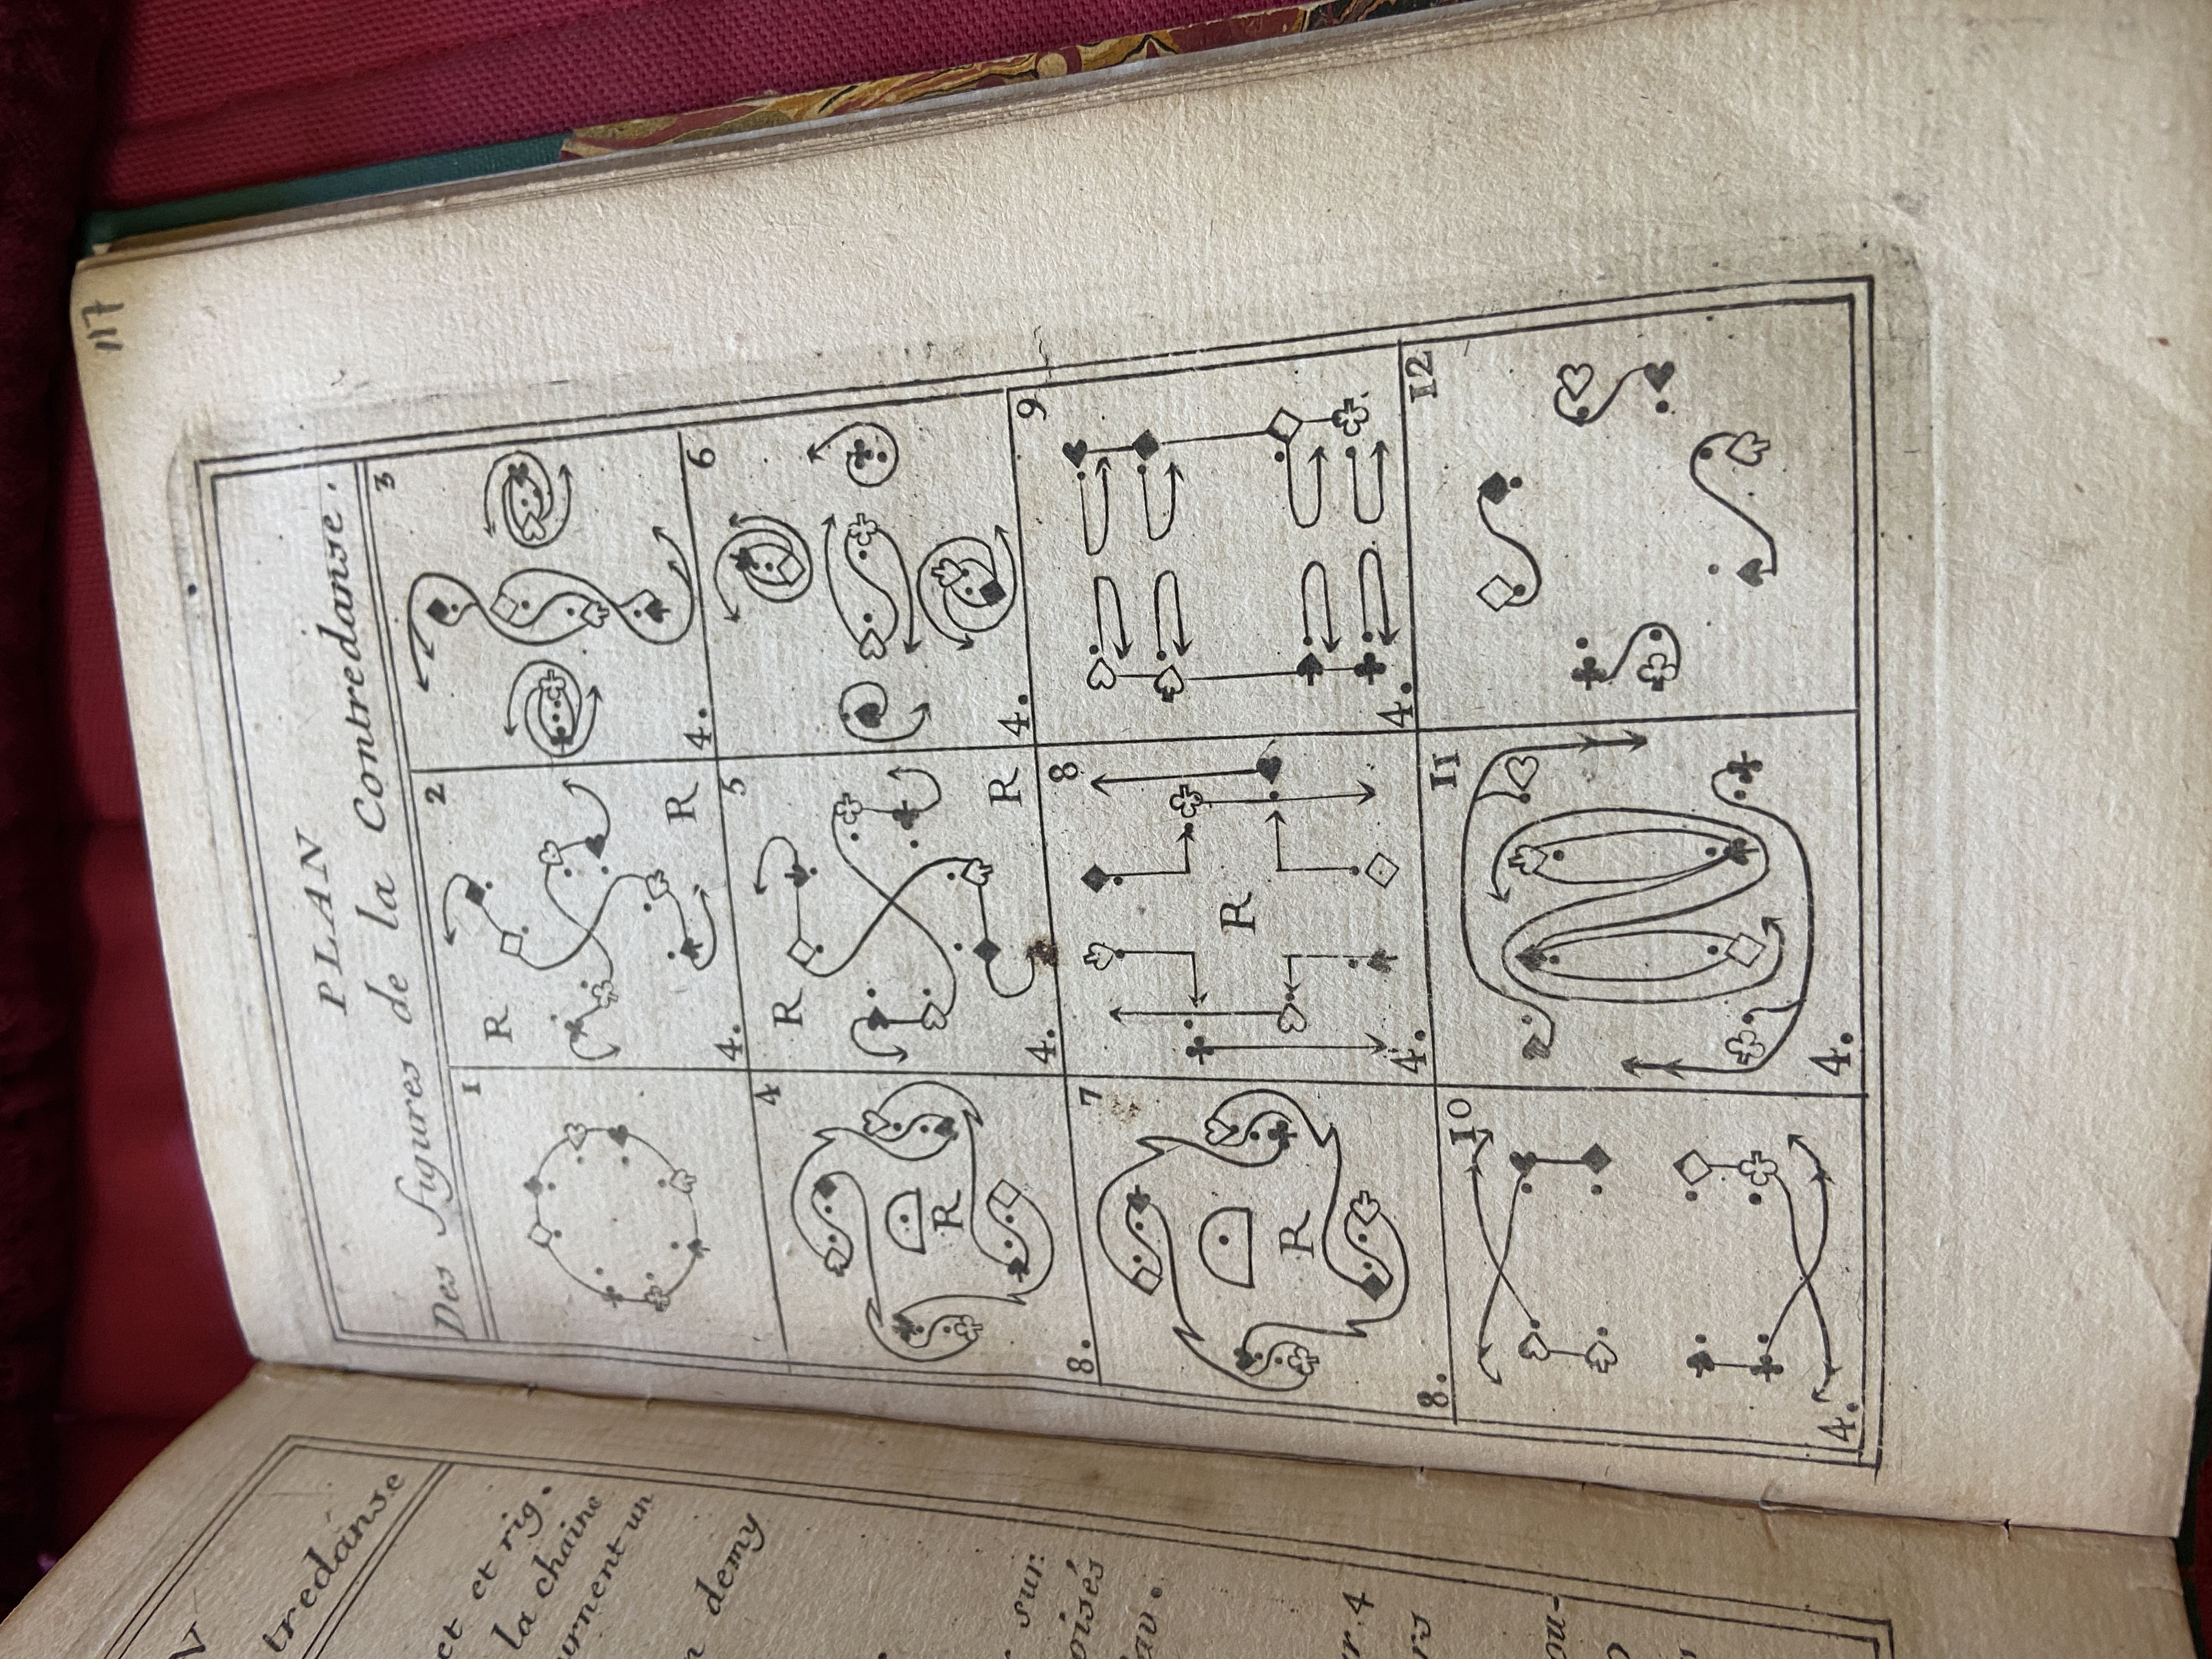 117
PLAN
Des Figures de la Contredanse.
1
2
3
R
R
4.
4.
4
5
6
R
R
R
8.
4.
4.
7
8
9
R
R
8.
4.
4.
10
11
12
4.
4.
tredanse
et et rig.
la chaine
urnent un
demy
sur
oisés
av.
r. 4
rs
ou-